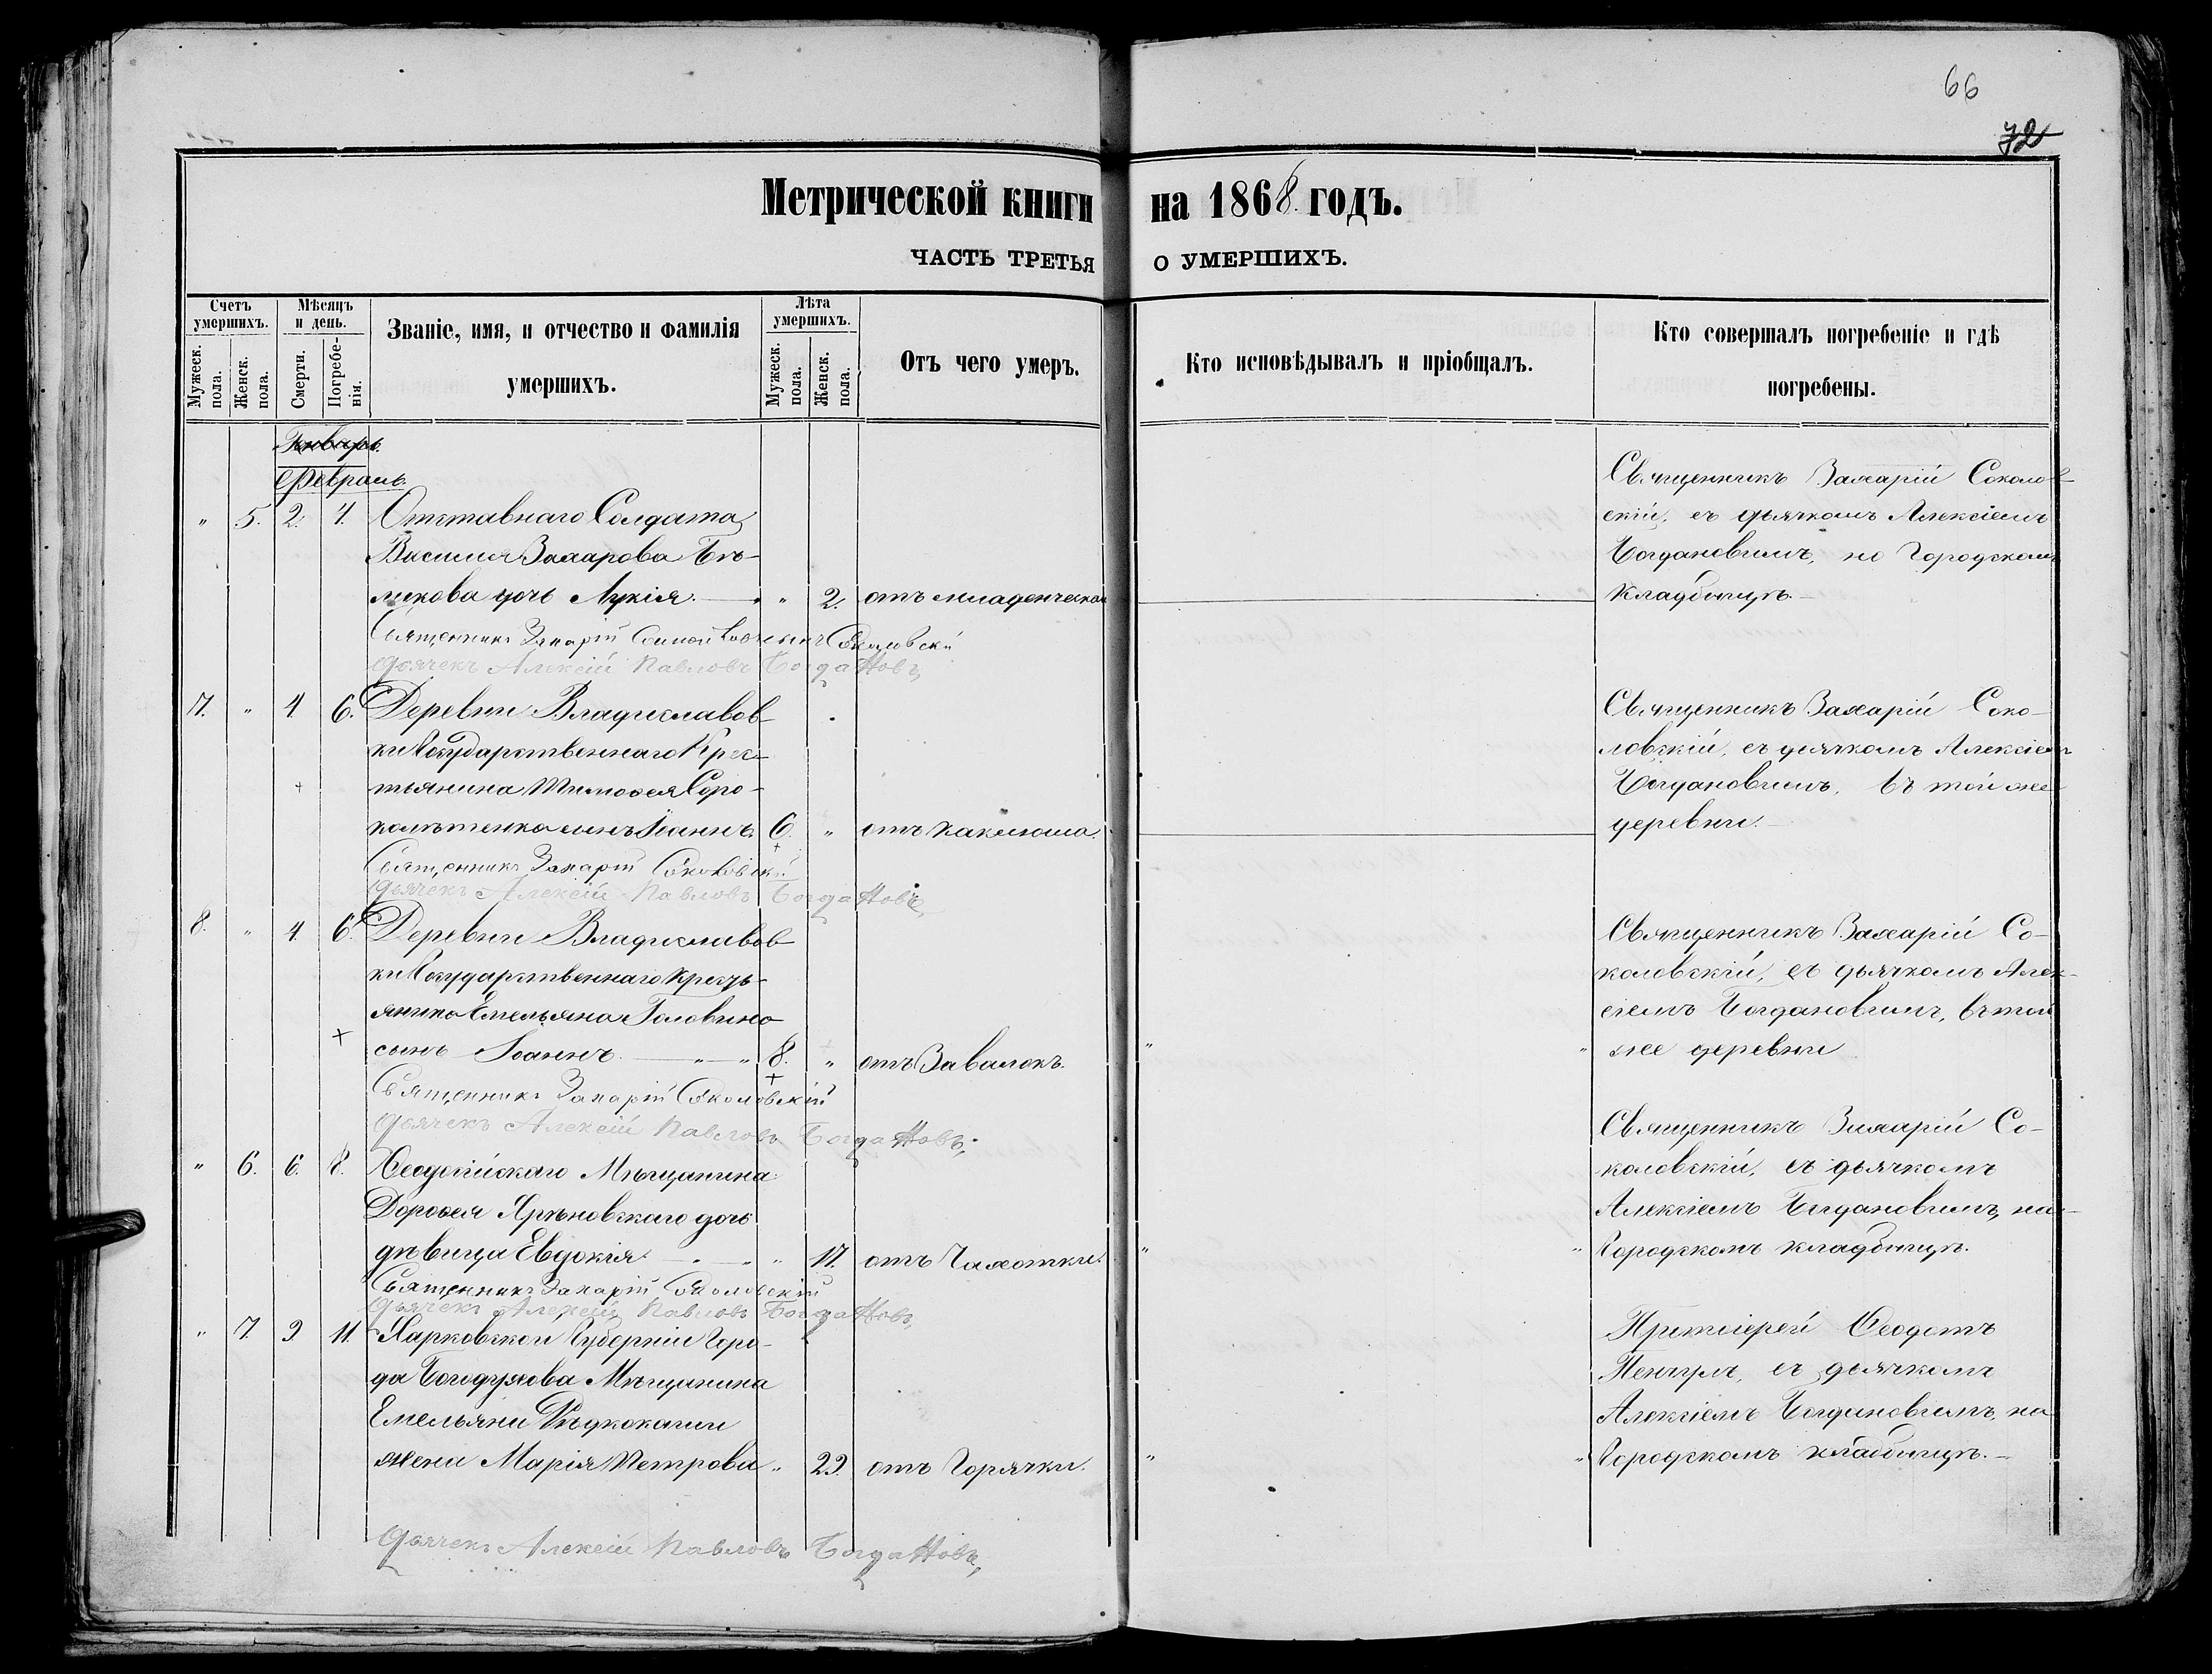 66
72
Метрической книги на 1868. годъ.
ЧАСТЬ ТРЕТЬЯ О УМЕРШИХЪ.
Счетъ умершихъ.
Мужеск. пола.
Женск. пола.
Мѣсяцъ и день.
Смерти.
Погребенія.
Званіе, имя, и отчество и фамилія
умершихъ.
Лѣта умершихъ.
Мужеск. пола.
Женск. пола.
Отъ чего умеръ.
Кто исповѣдывалъ и пріобщалъ.
Кто совершалъ погребеніе и гдѣ
погребены.
Январь.
Февраль.
" 5. 2. 4. Отставнаго Солдата
Василия Захарова Бѣ-
ликова дочь Лукія. " 2. отъ младенческой
Священникъ Захарій Соколов-
скій, съ дьячкомъ Алексіемъ
Богдановымъ, на Городскомъ
Кладбищѣ.
Священникъ Захарій Соколовскій
Дьячекъ Алексій Павловъ Богдановъ,
7. " 4. 6. Деревни Владиславов-
ки Государственнаго Крес-
тьянина Тимоѳея Соро-
колѣтенко сынъ Іоаннъ. 6. " отъ кашлюша.
Священникъ Захарій Соко-
ловскій, съ дьячкомъ Алексіемъ
Богдановымъ, въ той же
деревни.
Священникъ Захарій Соколовскій
Дьячекъ Алексій Павловъ Богдановъ,
8. " 4. 6. Деревни Владиславов-
ки Государственнаго Кресть-
янина Емельяна Головина
сынъ Іоаннъ. " " 8. " отъ Завалокъ.
Священникъ Захарій Со-
коловскій, съ дьячкомъ Алек-
сіемъ Богдановымъ, въ той
же деревни
Священникъ Захарій Соколовскій
Дьячекъ Алексій Павловъ Богдановъ,
" 6. 6. 8. Ѳеодосійскаго Мѣщанина
Дороѳея Яръновскаго дочь
дѣвица Евдокія. " 17. отъ Чахотки.
Священникъ Захарій Со-
коловскій, съ дьячкомъ
Алексіемъ Богдановымъ, на
Городскомъ кладбищѣ.
Священникъ Захарій Соколовскій
Дьячекъ Алексій Павловъ Богдановъ,
" 7. 9 11. Харковской Губерніи Горо-
да Богодухова Мѣщанина
Емельяна Рѣдкокаши
жена Марія Петрова " 29. отъ Горячки.
Протоіерей Ѳеодотъ
съ дьячкомъ
Алексіемъ Богдановымъ, на
Городскомъ кладбищѣ.
Дьячекъ Алексій Павловъ Богдановъ,